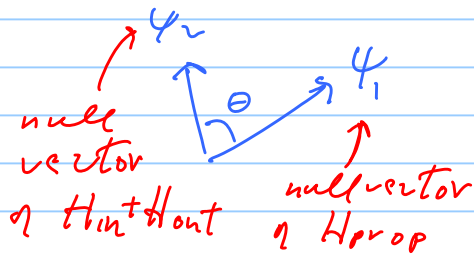 ψ₂
ψ₁
θ
null vector of Hin + Hout
null vector of Hprop